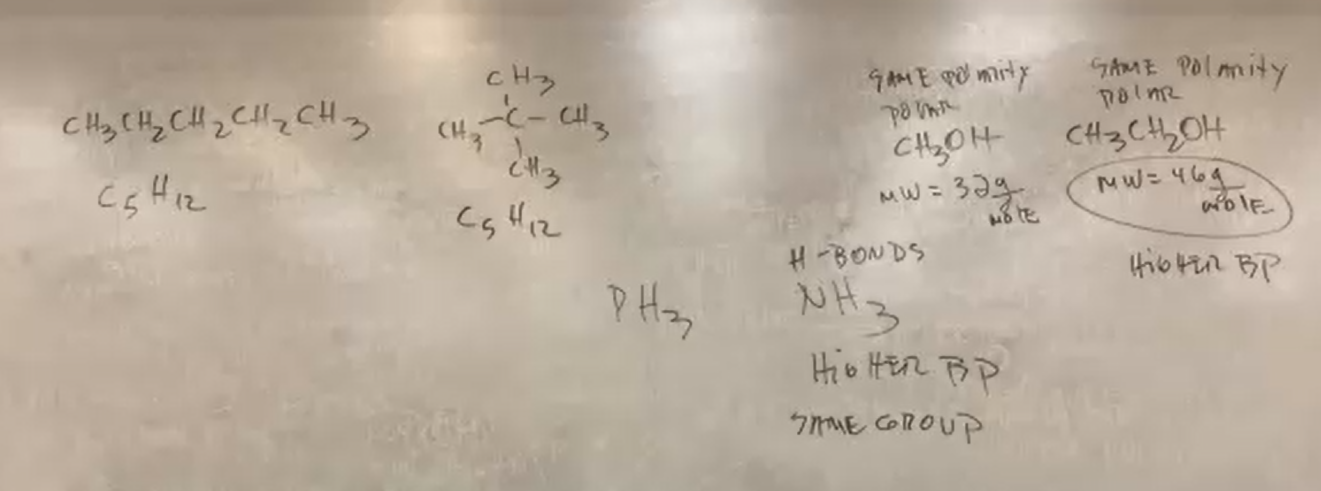 CH3CH2CH2CH2CH3
C5H12
CH3
CH3-C-CH3
CH3
C5H12
SAME POlARity
POlAR
CH3OH
MW = 32g
MOlE
SAME POlARity
POlAR
CH3CH2OH
MW = 46g
MOlE
HiGHER BP
H-BONDS
PH3
NH3
HiGHER BP
SAME GROUP